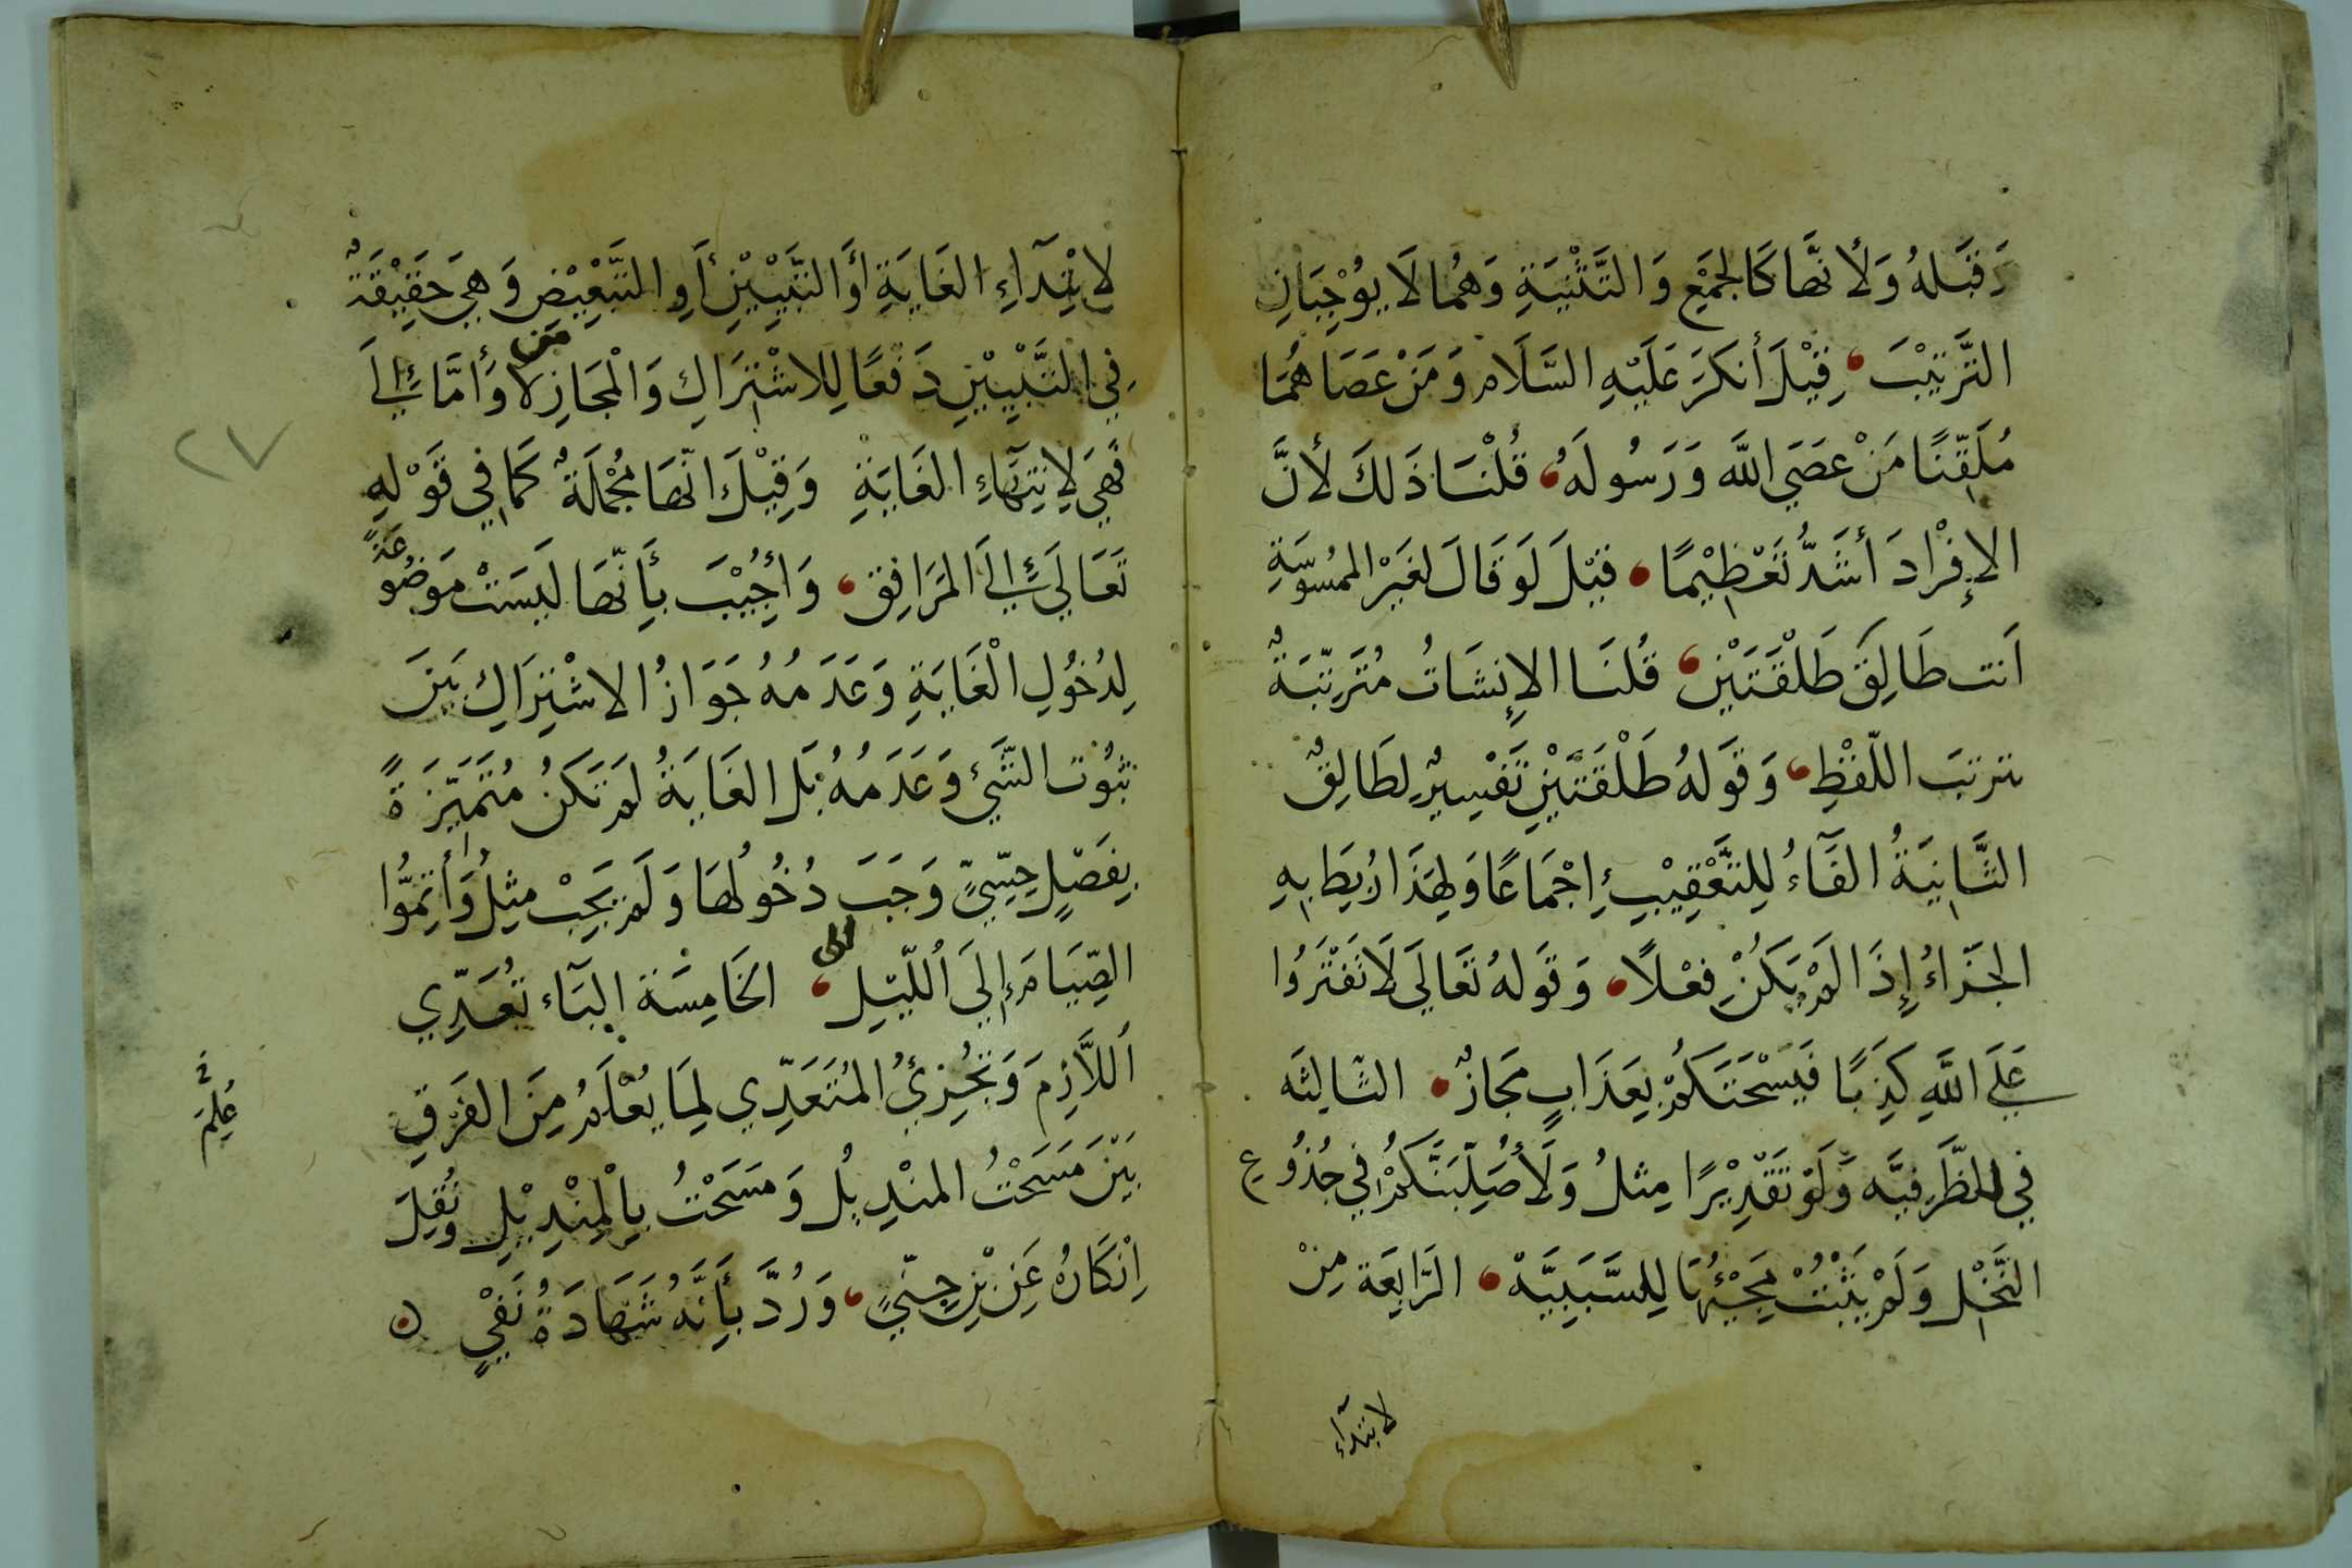 وَقَبْلَهُ وَلأَنَّهَا كَالجَمْعِ وَالتَّثْنِيَةِ وَهُمَا لَا يُوْجِبَانِ
التَّرتِيْبَ قِيْلَ أَنكَرَ عَلَيْهِ السَّلَام وَمَنْ عَصَاهُمَا
مُلَقِّنًا مَنْ عَصَى اللَّه وَرَسُولَهُ قُلْنَا ذَلكَ لأَنَّ
الإِفْرادَ أَشَدُّ تَعْظِيْمًا قيْلَ لَو قَالَ لغَيْر الممْسُوسَةِ
اَنت طَالِقٌ طَلْقَتَيْنِ قُلنَا الإِنشَاتُ مُتَرتِّبَةٌ
بترتبَ اللّفْظِ وَقَولهُ طَلْقَتَيْنِ تَفْسِيرٌ لِطَالِقٌ
الثَّانِيَةُ الفَآءُ لِلتَّعْقِيْبِ إِجْمَاعًا وَلِهَذَا رُبِطَ بِهِ
الجَزاءُ إِذَا لَمْ يَكُنْ فعْلًا وَقَولهُ تَعَالَى لَا تَفْتَرُوا
عَلَى اللَّهِ كَذِبًا فَيُسْحِتَكُمْ بِعَذَابٍ مَجَازٌ الثَّالِثَه
فِي للظَّرفِيَّه وَلَوْ تَقْدِيْرًا مِثلُ وَلَأُصَلِّبَنَّكُمْ فِي جُذُوعِ
النَّخْلِ وَلَمْ يَثْبُتْ مَجِيْئُهَا لِلسَّبَبِيَّهْ الرَّابِعَة مِنْ
لابتدآء
لابْتِدَآءِ الغَايَةِ أَوَ التَّبْيِيْنِ أَوِ التَّبْعِيْضِ وَهِيَ حَقِيْقَةٌ
فِي التَّبْيِيْنِ دَفعًا لِلاشْتِرَاكِ وَالْمَجَازِ لا وَأَمَّا إِلَى
فَهِيَ لِانتِهَآءِ الغَايَةِ وَقِيْلَ انَّهَا مُجْمَلَةٌ كَمَا فِي قَوْلِهِ
تَعَالَى إِلَى المَرَافِق وَأُجِيْبَ بأَنَّهَا لَيسَتْ مَوضُوعَةً
لِدُخُولِ الْغَايَةِ وَعَدَمُهُ جَوَازُ الاشْتِرَاكِ بَينَ
ثبُوُت الشَّيْءِ وَعَدَمُهُ بَل الغَايَةُ لَم تَكنُ مُتَمَيِّزَةً
بِفَصْلٍ حِسِّيٍّ وَجَبَ دُخُولُهَا وَلَم يَجِبْ مثِلُ وَأَتِمُّوا
الصِّيَامَ إِلَى اللّيْلِ الخَامِسَة البَآء تُعَدِّي
اَللَّازِمَ وَتُجَزِّئُ المُتَعَدِّي لِمَا يُعْلَمُ مِنَ الفَرقِ
بَيْنَ مَسَحْتُ المنْدِيلَ وَمَسَحْتُ بِالْمِنْدِيْلِ وَنُقِلَ
اِنْكَارُهُ عَنِ ابْنِ جِنّيٍ وَرُدَّ بأَنَّهُ شَهَادَةُ نَفْيٍ
عُلِمَ
٢٧